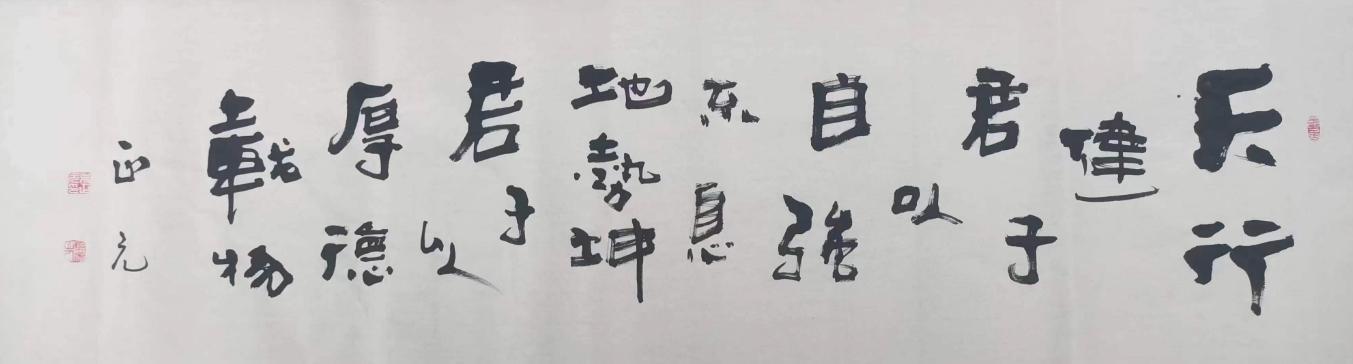 天行
健
君子
以
自强
不息
地勢坤
君子
以
厚德
載物
正元